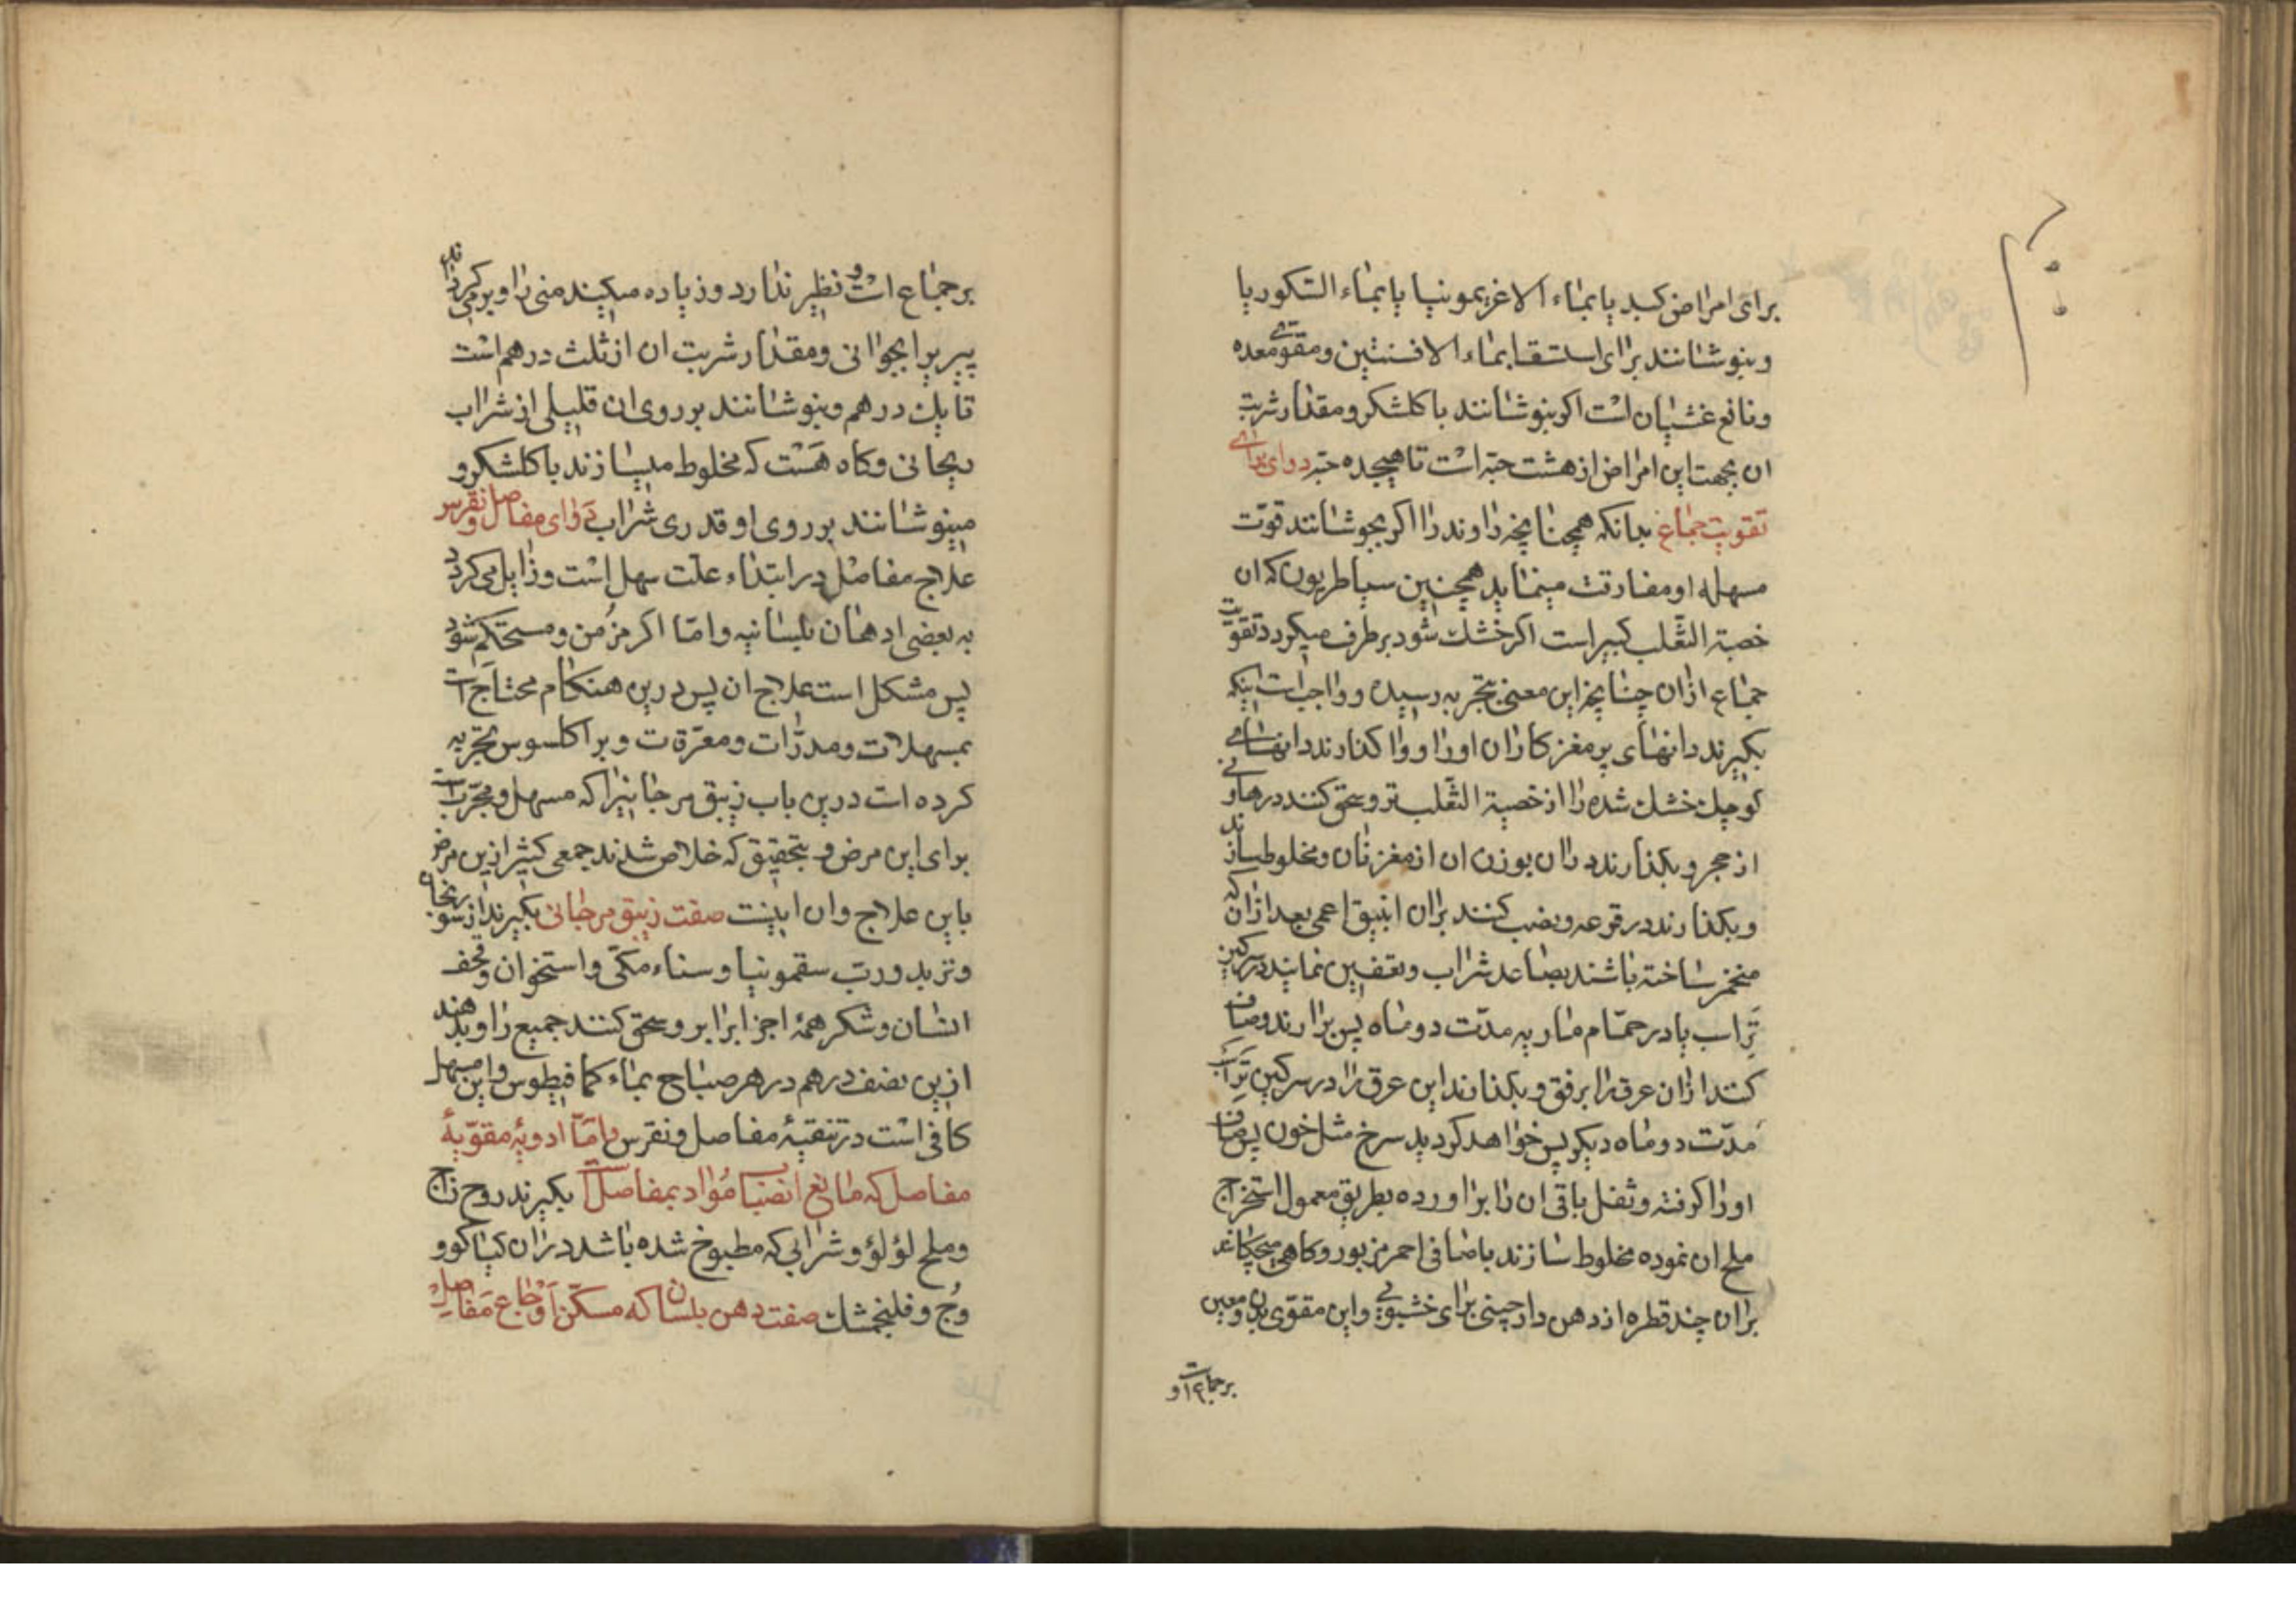 برای امراض کبد یا بماء الاغریمونیا یا بماء الشکوریا
وبنوشانند برای استسقا بماء الافسنتین ومقوی معده
ونافع غشیان است اکر بنوشانند باکلشکر ومقدار شربت
ان بجهت این امراض از هشت حبّه است تا هیجده حبّه دوای برای
تقویت جماع بدانکه همچنانچه راوند را اکر بجوشانند قوّت
مسهله او مفارقت مینماید همچنین سیاطریون که ان
خصیة الثّعلب کبیر است اکر خشک شود برطرف میکردد تقویت
جماع ازان چنانچه این معنی بتجربه رسیده وواجبست اینکه
بکیرند دانهای پرمغز کلان اورا وواکذارند دانهای
کوچک خشک شده را از خصیة الثّعلب تر وسحق کنند در هاونی
از حجر وبکذارند دران بوزن ان از مغز نان ومخلوط سازند
وبکذارند در قرعه ونصب کنند بران انبیق اعمی بعد ازان که
متخمّر ساخته باشند بصاعد شراب وتعفین نمایند در سرکین
تَراسب یا در حمّام ماریه مدّت دو ماه پس برارند وصاف
کنند ازان عرق را برفق وبکذارند این عرق را در سرکین تَراسب
مدّت دو ماه دیکر پس خواهد کردید سرخ مثل خون پس صاف
اورا کرفته وثفل باقی ان را براورده بطریق معمول استخراج
ملح ان نموده مخلوط سازند باصافی احمر مزبور وکاهی میچکانند
بران چند قطره از دهن دارچینی برای خشبوئی واین مقوّی بدن ومعین
برجماعست و
برجماع است و نظیر ندارد وزیاده میکند منی را وبرمیکرداند
پیر را بجوانی ومقدار شربت ان از ثلث درهم است
تا یک درهم وبنوشانند بر روی ان قلیلی از شراب
ریحانی وکاه هست که مخلوط میسازند باکلشکر و
مینوشانند بر روی او قدری شراب دوای مفاصل ونقرس
علاج مفاصل در ابتداء علّت سهل است وزایل می کردد
به بعضی ادهان بلسانیه وامّا اکر مزمن ومستحکم شود
پس مشکل است علاج ان پس درین هنکام محتاج است
بمسهلات ومدرّات ومعرّقات وبراکلسوس تجربه
کرده است درین باب زیبق مرجانیرا که مسهل ومجرّبست
برای این مرض و بتحقیق که خلاص شدند جمعی کثیر ازین مرض
باین علاج وان اینست صفت زیبق مرجانی بکیرند از سورنجان
وتربد ورب سقمونیا وسناء مکّی واستخوان وقحف
انسان وشکر همهٔ اجزا برابر وسحق کنند جمیع را وبدهند
ازین نصف درهم در هر صباح بماء کمافیطوس واین مسهل
کافی است در تنقیهٔ مفاصل ونقرس وامّا ادویهٔ مقوّیهٔ
مفاصل که مانع انصباب مواد بمفاصل است بکیرند روح زاج
وملح لؤلؤ وشرابی که مطبوخ شده باشد دران کباکوو
وُج وفلنجمشک صفت دهن بلسان که مسکّن اَوْجاع مَفاصِل